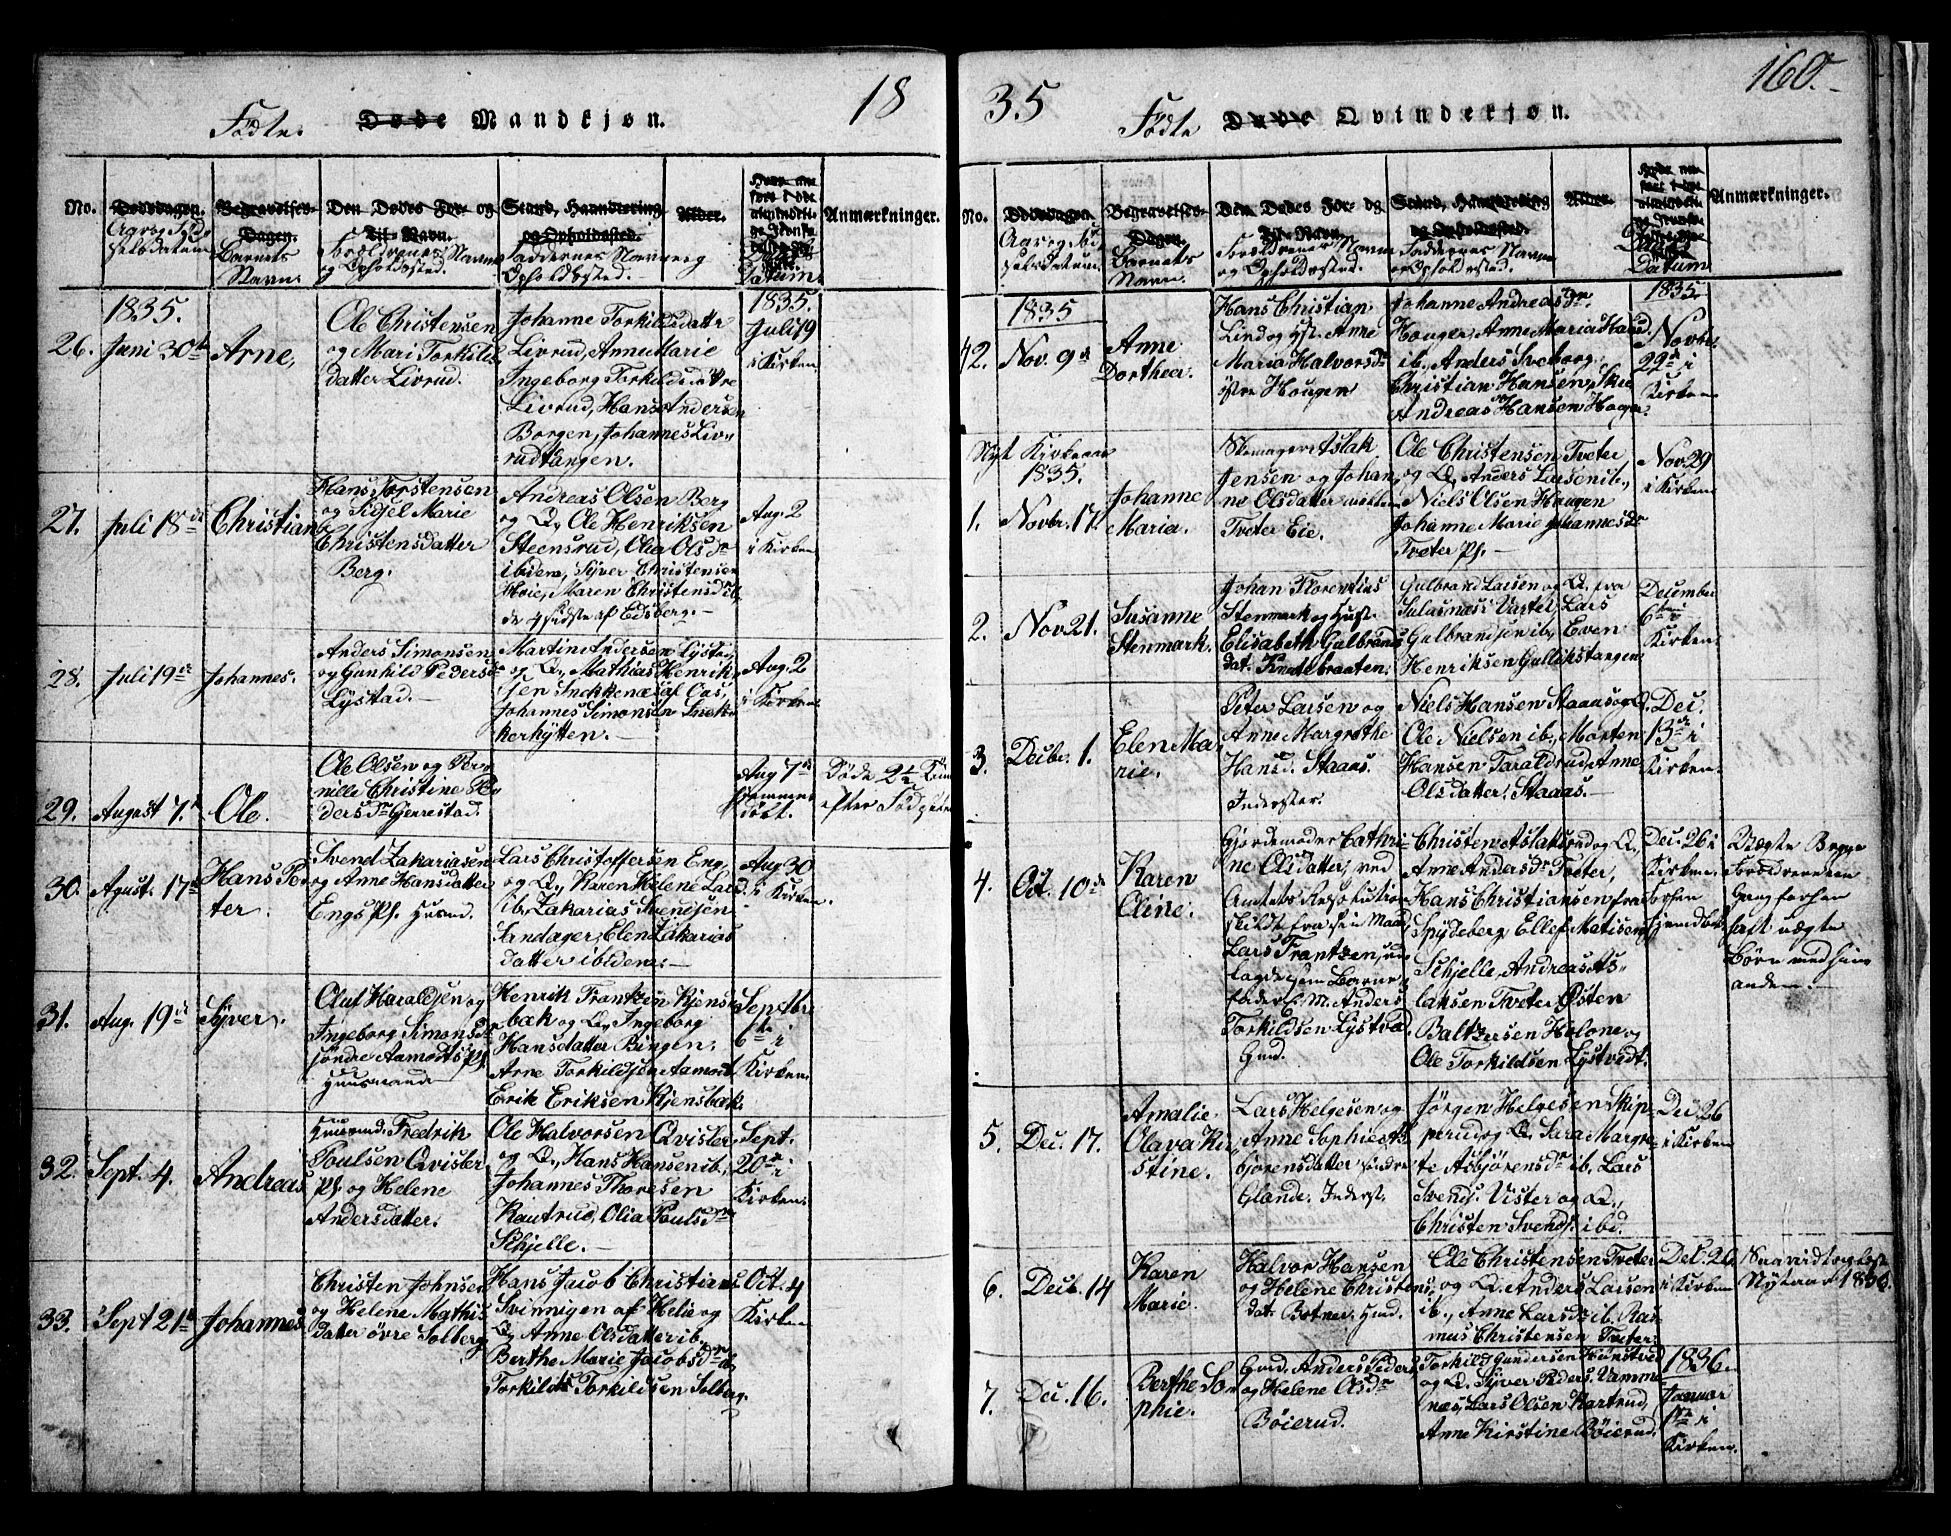 18
Fødte. Døde Mandkjøn.
No.
Dødsdagen.
Aar og Fødselsdatum
Begravelses-Dagen.
Barnets Navn.
Den Dødes For- og Til-Navn.
Forældrenes Navne og Opholdssted.
Stand, Haandtering og Opholdssted.
Faddernes Navne og Opholdssted.
Alder.
Daabs Datum.
Anmærkninger.
1835.
26. Juni 30te
Arne,
Ole Christensen
og Mari Torkilds-
datter Livrud.
Johanne Torkildsdatter
Livrud, Anne Marie
Ingeborg Torkildsdøttre
Livrud, Hans Andersen
Borgen, Johannes Liv-
rudtangen.
1835.
Juli 19
i Kirken
27. Juli 18de
Christian
Hans Torstensen
og Sidsel Marie
Christensdatter
Berg.
Andreas Olsen Berg
og Q., Ole Henriksen
Steensrud, Olea Olsdr
ibidem, Syver Christensen
Moie, Maren Christensdr ib.
de 4 sidste af Edsberg.-
Aug. 2
i Kirken
28. Juli 19de
Johannes.
Anders Simonsen
og Gunhild Pedersd.
Lystad.-
Martin Andersen Lystad
og Q., Mathias Henrik-
sen Snekkenæs af Aas,
Johannes Simonsen Snek-
kerhytten.-
Aug. 2
i Kirken
29. August 7.
Ole.
Ole Olsen og Per-
nille Christine Pe-
dersdr Gjerrestad.
Aug 7de
hjemme-
døbt.
Døde 2½ Time
efter Fødselen
30. Agust. 17de
Hans Pe-
ter.
Svend Zakariasen
og Anne Hansdatter
Engs Pl. Husmd.
Lars Christoffersen Eng
og Q., Karen Helene Larsd.
ib., Zakarias Svendsen
Sandager, Elen Zakarias
datter ibidem.-
Aug 30
i Kirken.
31. Aug. 19de
Syver.
Oluf Haraldsen og
Ingeborg Simonsdr
søndre Aamodts Pl.
Huusmand
Henrik Frantzen Kjens-
bak og Q., Ingeborg
Hansdatter Bingen,
Arne Torkildsen Aamodt
Erik Eriksen Kjensbak.
Septbr
6te i
Kirken.
32. Sept. 4.
Andreas
Huusmd. Fredrik
Poulsen Qvisler
Pl. og Helene
Andersdatter.
Ole Halvorsen Qvisler
og Q., Hans Hansen ib.,
Johannes Thoresen
Rautrud, Olia Poulsdr
Schjelle.-
Sept.
20de i
Kirken.
33. Sept 21de
Johannes
Christen Johnsen
og Helene Mathis
datter øvre Solberg
Hans Jacob Christians.
Svinnigen af Helie og
Q., Anne Olsdatter ib.,
Berthe Marie Jacobsdr ib.
Torkild Torkildsen Solberg.
Oct. 4
Kirken
35
160.
Fødte Døde Qvindekjøn.
No.
Dødsdagen
Aar og Fødselsdatum.
Begravelses-Dagen.
Barnets Navn.
Den Dødes For- og Til-Navn.
Forældrenes Navne og Opholdssted.
Stand, Haandtering og Opholdssted.
Faddernes Navne og Opholdssted.
Alder.
Daabs Datum
Anmærkninger.
1835
42. Nov. 9de
Anne
Dorthea.
Hans Christian
Lind og Hst. Anne
Maria Halvorsdr
østre Hougen
Johanne Andreasdr
Houger, Anne Maria Hansd.
ib., Anders Sveborg,
Christian Hansen, Skie
Andreas Hansen Houger.
1835.
Novbr
22de i
Kirken
Nyt Kirkeaar
1835.
1. Novbr. 17.
Johanne
Maria.
Skomager Aslak
Jensen og Johan
ne Olsdatter mellem
Tveter Eie.
Ole Christensen Tveter
og Q., Anders Larsen ib.,
Niels Olsen Haugen
Johanne Marie Johannesdr
Tveter Pl.-
Nov. 29
i Kirken
2. Nov 21.
Susanne
Stenmark.
Johan Florentius
Stenmark og Hust.
Elisabeth Gulbrands
dat. Knattebraaten.
Gulbrand Larsen og Q. fra
Sulasnæs i Vasler, Lars
Gulbrandsen ib., Even
Henriksen Gullikstangen
December
6te i
Kirken.
3. Decbr. 1.
Elen Ma-
rie.
Peter Larsen og
Anne Margrethe
Hansd. Staaas.
Inderster.
Niels Hansen Staaas og Q.
Ole Nielsen ib., Morten
Hansen Taraldrud, Anne
Olsdatter, Staaas.-
Dec.
13de i
Kirken.
4. Oct. 10de
Karen
Oline.
Gjordemoder Cathri-
ne Olsdatter, ved
Amtets Resolution
skildt fra sin Mand
Lars Frantzen, ud-
lagde som Barne-
fader E. M. Anders
Torkildsen Lystvad
Gmd.
Christen Aslaksrud og Q.,
Anne Andersdr Tveter,
Hans Christiansen fra
Spydeberg, Ellef Matisen
Schjelle, Andreas As-
laksen Tveter, Østen
Baltzersen Holone og
Ole Torkildsen Lystvedt.
Dec. 26 i
Kirken.
Forhen
hjemdøbt.
Uægte Begge
Forældrenes
Gang forhen
havt uægte
Børn med hin-
anden.-
5. Dec. 17.
Amalie
Olava Kir-
stine.
Lars Helgesen og
Anne Sophie As-
bjørensdatter søndre
Glande. Inderst.
Jørgen Helgesen Skip-
perud og Q., Sara Margre-
te Asbjørensdr ib., Lars
Svends. Vister og Q.,
Christen Svends. ibid.
Dec 26
i Kirken
6. Decb. 14
Karen
Marie.
Halvor Hansen
og Helene Christens
dat. Botner, Hmd.
Ole Christensen Tveter
og Q., Anders Larsen
ib., Anne Larsdr ib., Ras-
mus Christensen Tveter.
Dec. 26
i Kirken
Nytaar 1836.
7. Dec. 16.
Berthe So-
phie.
Gmd. Anders Peders.
og Helene Olsdr
Bøierud.
Torkild Gundersen Rønstved
og Q. Syver Peders. Vamme
næs, Lars Olsen Kartrud,
Anne Kirstine Bøierud.
1836.
Januar
1ste i
Kirken.